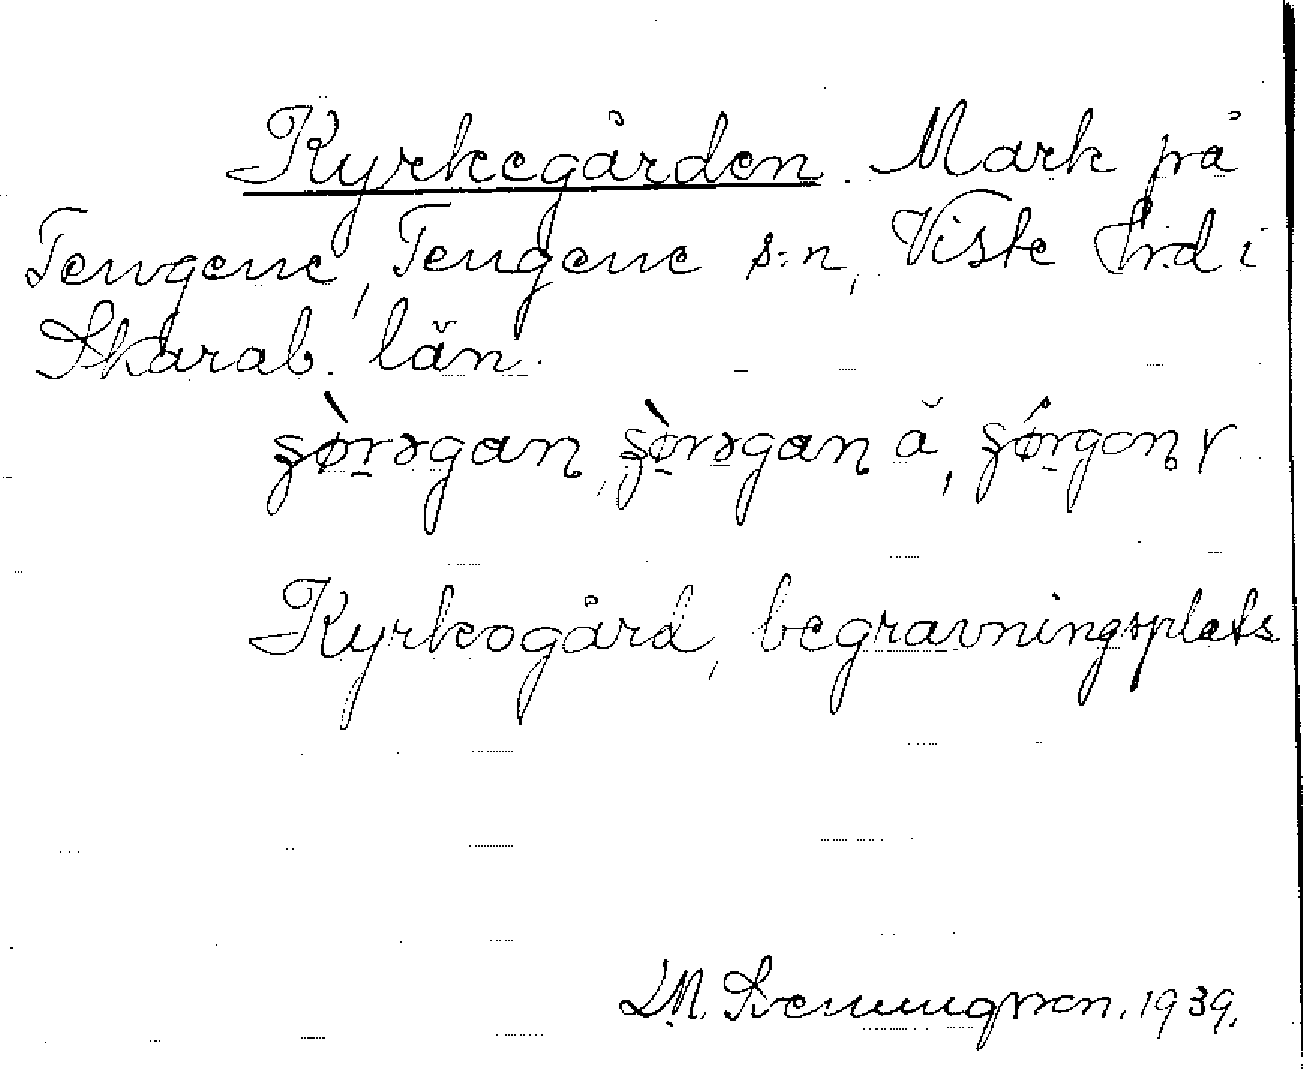 Kyrkegården. Mark på
Tengene, Tengene s:n, Viste hrd i
Skarab. län.
ʂø̀rəgan, ʂø̀rəgan ă, ʂǿrgan r
Kyrkogård, begravningsplats
D.M. Svenungsson. 1939.